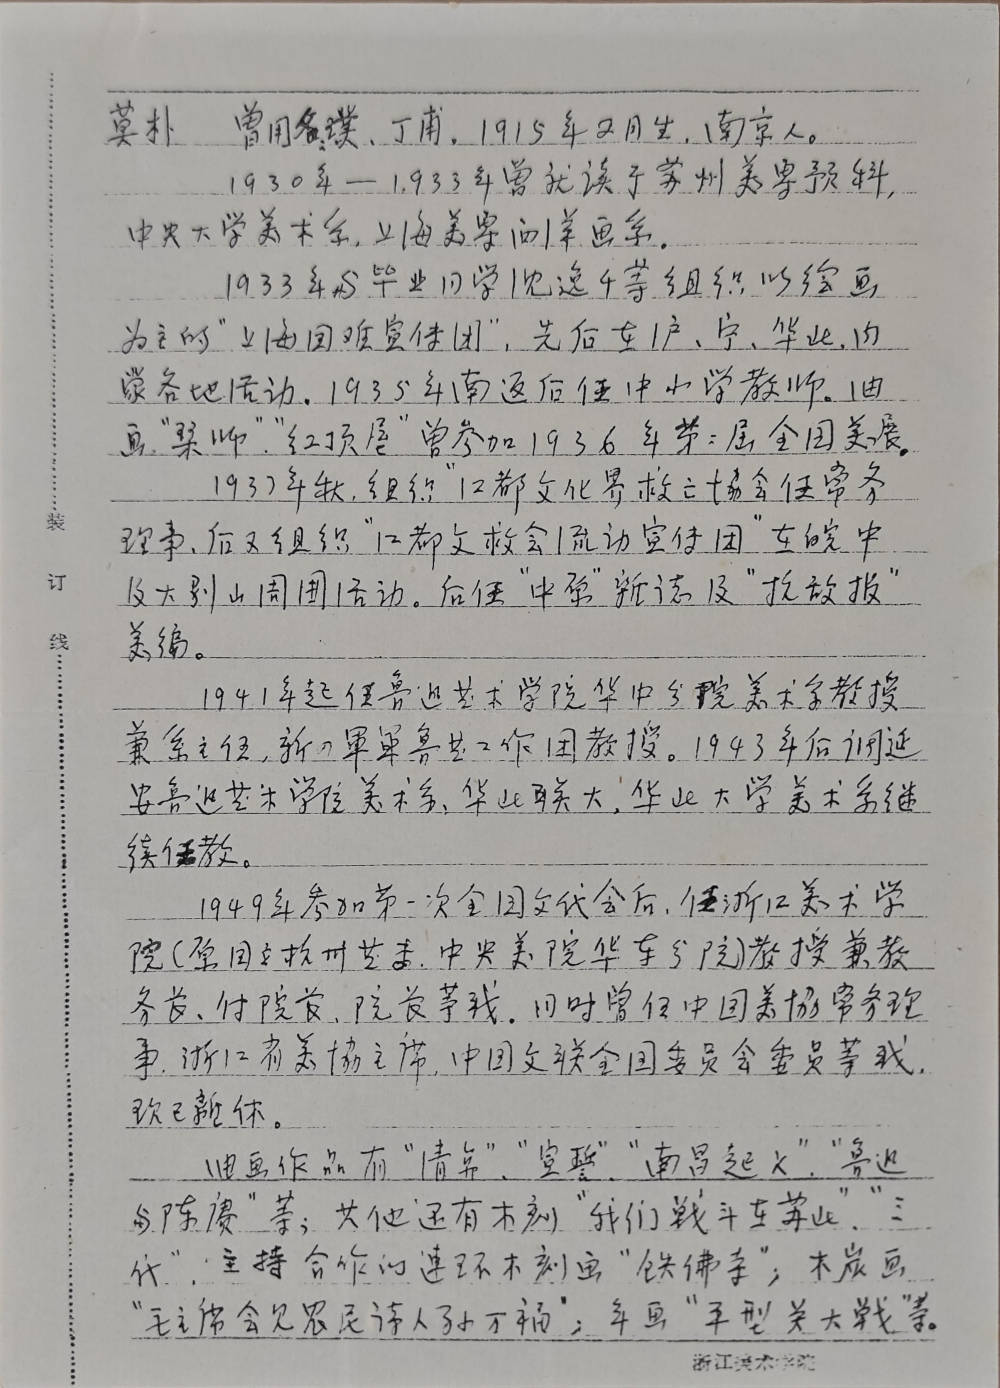 莫朴 曾用名璞、丁甫。1915年2月生,南京人。
1930年—1933年曾就读于苏州美专预科,
中央大学美术系,上海美专西洋画系。
1933年与毕业同学沈逸千等组织以绘画
为主的"上海国难宣传团",先后在沪、宁、华北、内
蒙各地活动。1935年南返后任中小学教师。油
画"琴师"、"红顶屋"曾参加1936年第二届全国美展。
1937年秋,组织"江都文化界救亡協会任常务
理事、后又组织"江都文救会流动宣传团"在皖中
及大别山周围活动。后任"中原"雜志及"抗敌报"
美编。
1941年起任鲁迅艺术学院华中分院美术系教授
兼系主任,新四軍軍鲁艺工作团教授。1943年后调延
安鲁迅艺术学院美术系、华北联大,华北大学美术系继
续任教。
1949年参加第一次全国文代会后,任浙江美术学
院(原国立杭州艺专、中央美院华东分院)教授兼教
务长、付院长、院长等职。同时曾任中国美協常务理
事,浙江省美協主席,中国文联全国委员会委员等职,
现已離休。
油画作品有"清算"、"宣誓"、"南昌起义"、"鲁迅
与陈赓"等;其他还有木刻"我们戰斗在苏北"、"三
代",主持合作的连环木刻画"铁佛寺";木炭画
"毛主席会见农民诗人孙万福";年画"平型关大戰"等。
装
订
线
浙江美术学院